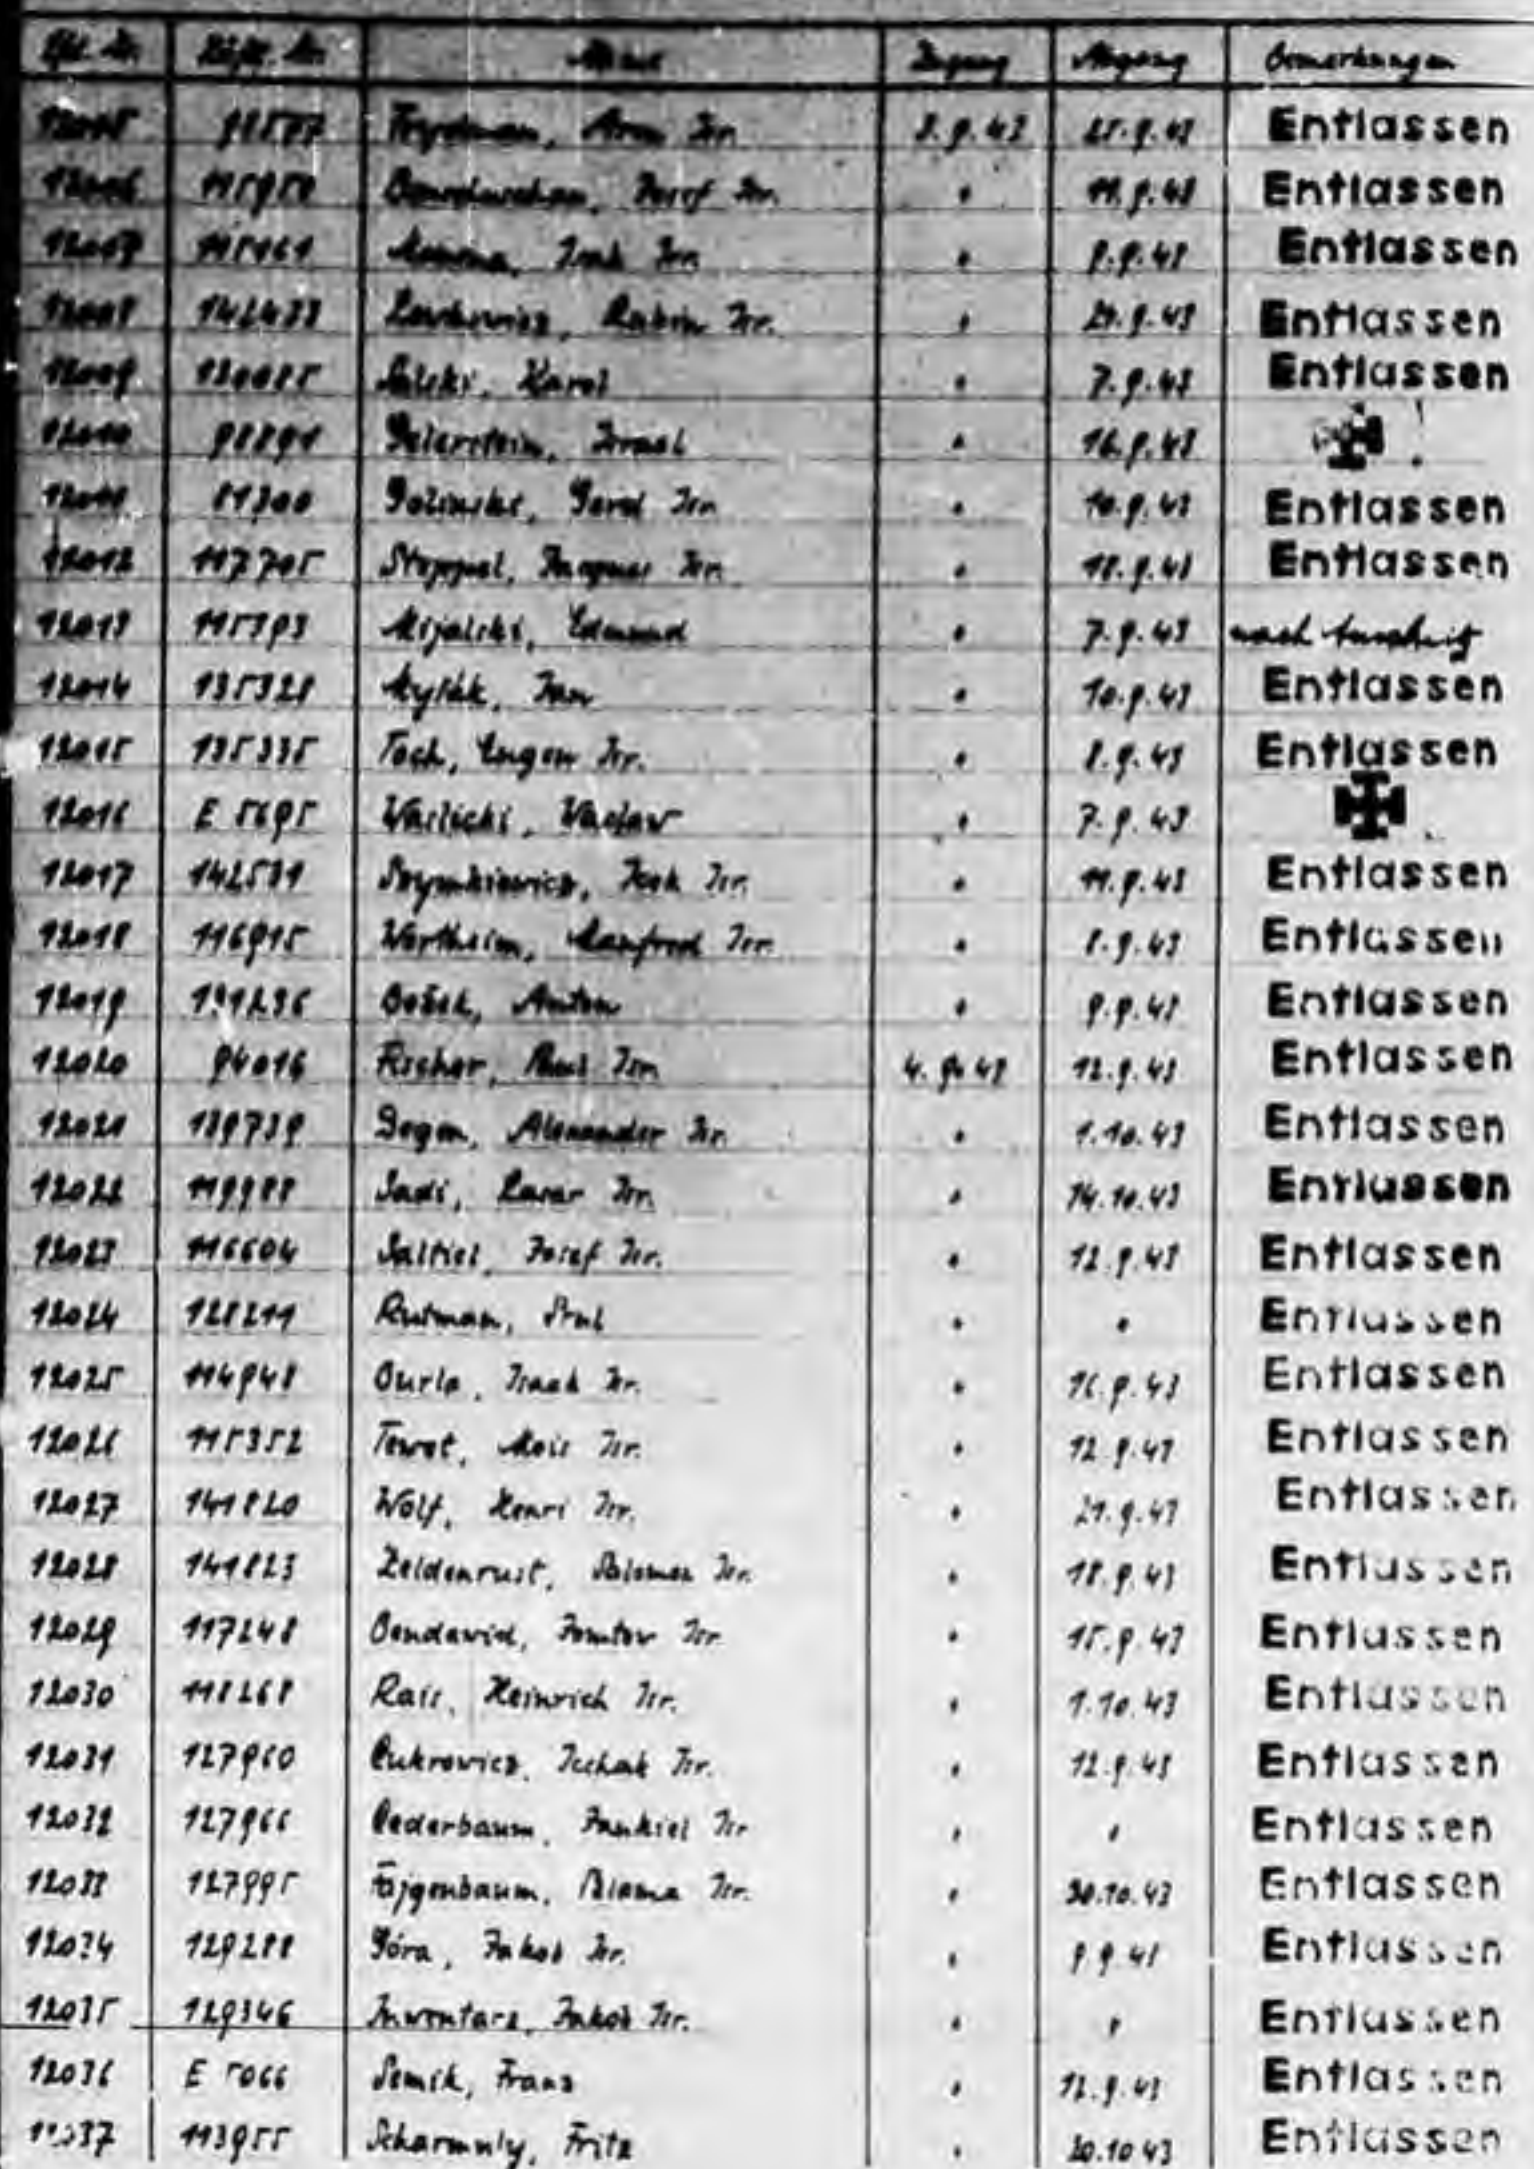 Lfd. Nr. Häftl. Nr. Name Zugang Abgang Bemerkungen
Frydman, Aron Isr. 3.9.43 25.9.43 Entlassen
12006 Josef Isr. " 11.9.43 Entlassen
12007 115161 Isr. " 9.9.43 Entlassen
12008 142433 Lewkowicz, Rubin Isr. " 29.9.43 Entlassen
12009 130085 Karol " 7.9.43 Entlassen
12010 98891 Israel " 16.9.43
12011 81300 Isr. " 10.9.43 Entlassen
12012 117705 Stoppel, Jacques Isr. " 18.9.43 Entlassen
12013 115393 Mijalski, Edmund " 7.9.43 nach
12014 135328 Jan " 10.9.43 Entlassen
12015 135335 Toch, Eugen Isr. " 8.9.43 Entlassen
12016 E 5695 Wasilecki, Wacław " 7.9.43
12017 142531 Szymkiewicz, Isr. " 11.9.43 Entlassen
12018 116915 Wertheim, Manfred Isr. " 8.9.43 Entlassen
12019 131236 Anton " 9.9.43 Entlassen
12020 94016 Fischer, Paul Isr. 4.9.43 12.9.43 Entlassen
12021 139739 Degen, Alexander Isr. " 1.10.43 Entlassen
12022 119988 Sadi, Lazar Isr. " 14.10.43 Entlassen
12023 116604 Saltiel, Josef Isr. " 12.9.43 Entlassen
12024 128211 Rutman, Srul " " Entlassen
12025 114948 Burla, Isaak Isr. " 16.9.43 Entlassen
12026 115352 Tewet, Mois Isr. " 12.9.43 Entlassen
12027 141820 Wolf, Henri Isr. " 21.9.43 Entlassen
12028 141823 Zeldenrust, Salomon Isr. " 18.9.43 Entlassen
12029 117248 Bendawid, Jomtov Isr. " 15.9.43 Entlassen
12030 118268 Rais, Heinrich Isr. " 1.10.43 Entlassen
12031 127960 Cukrowicz, Icchak Isr. " 12.9.43 Entlassen
12032 127966 Cederbaum, Jankiel Isr " " Entlassen
12033 127995 Fajgenbaum, Szlama Isr. " 30.10.43 Entlassen
12034 129288 Góra, Jakob Isr. " 9.9.43 Entlassen
12035 129346 Inwentarz, Jakob Isr. " " Entlassen
12036 E 5066 Semik, Franz " 12.9.43 Entlassen
12037 113955 Scharmuly, Fritz " 20.10.43 Entlassen